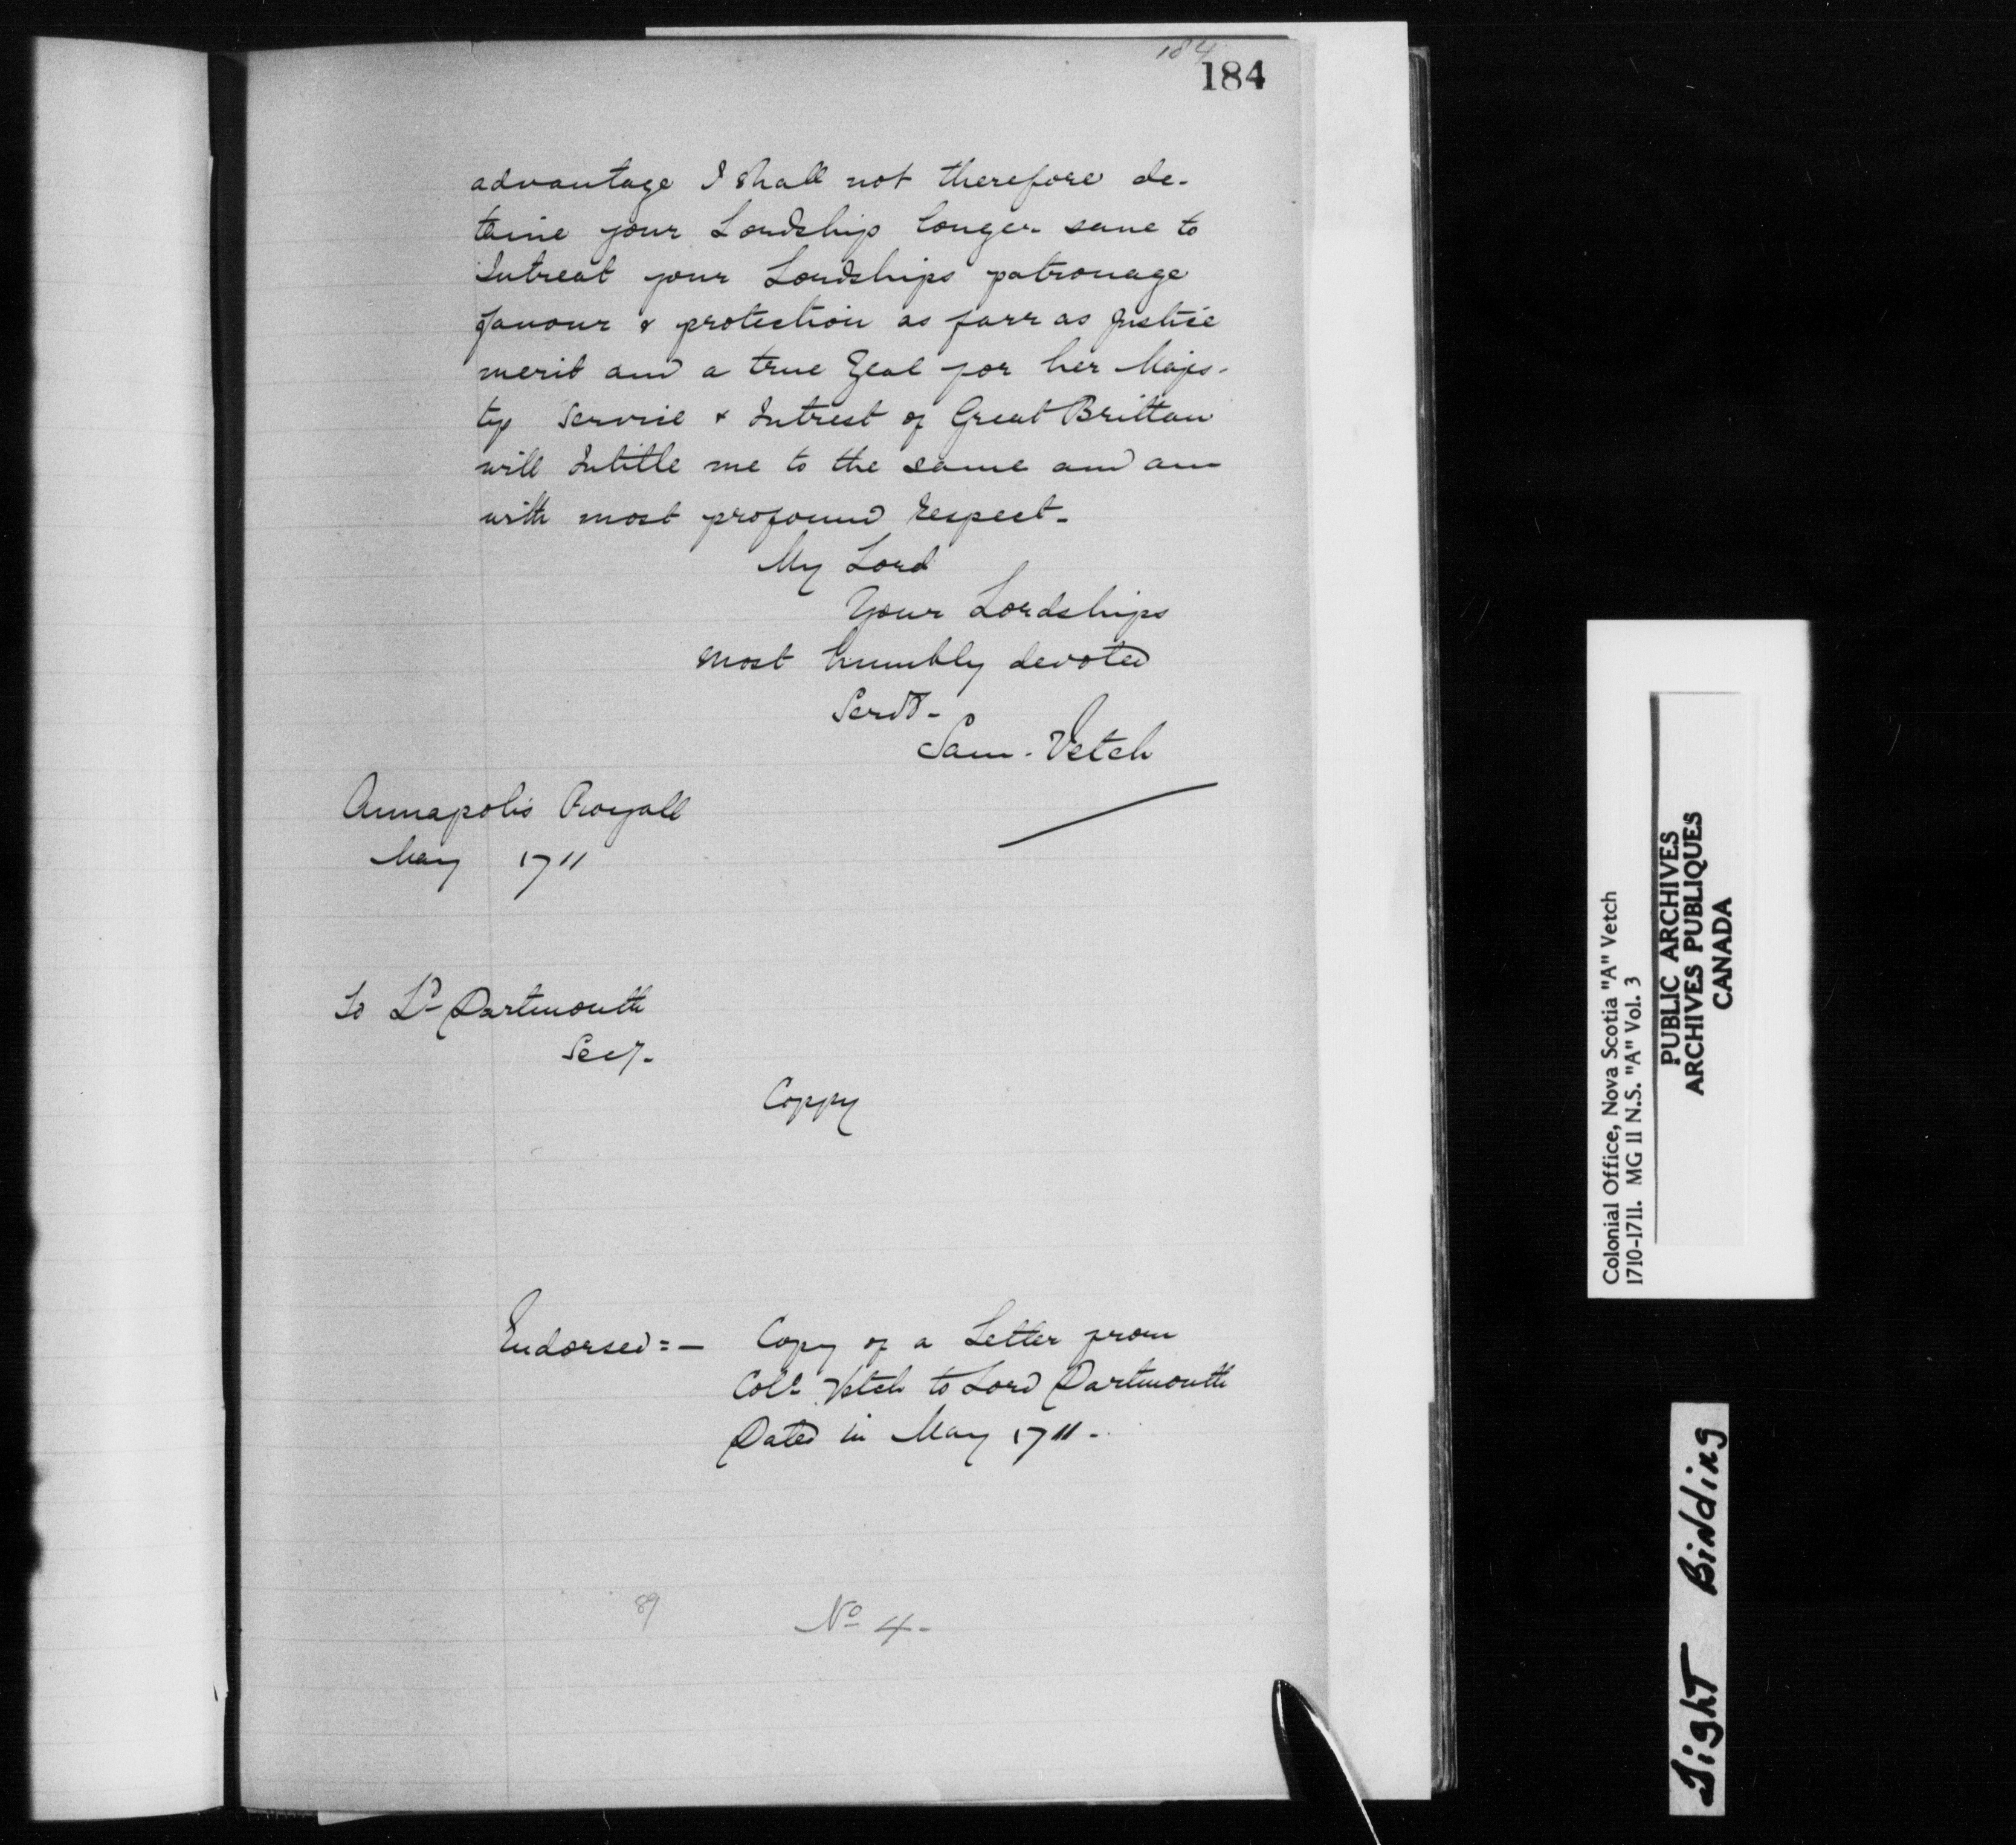 184
184
advantage I shall not therefore de-
taine your Lordship longer save to
Intreat your Lordships patronage
favour & protection as farr as Justice
merit and a true Zeal for her Majes-
ty Service & Intrest of Great Brittan
will Intitle me to the same and am
with most profound respect-
My Lord
Your Lordships
most humbly devoted
Servt-
Sam. Vetch
Annapolis Royall
May 1711
To Ld Dartmouth
Secy-
Coppy
Endorsed=- Copy of a Letter from
Coll. Vetch to Lord Dartmouth
Dated in May 1711-
89 No 4-
Colonial Office, Nova Scotia "A" Vetch
1710-1711. MG 11 N.S. "A" Vol. 3
PUBLIC ARCHIVES
ARCHIVES PUBLIQUES
CANADA
Tight Binding